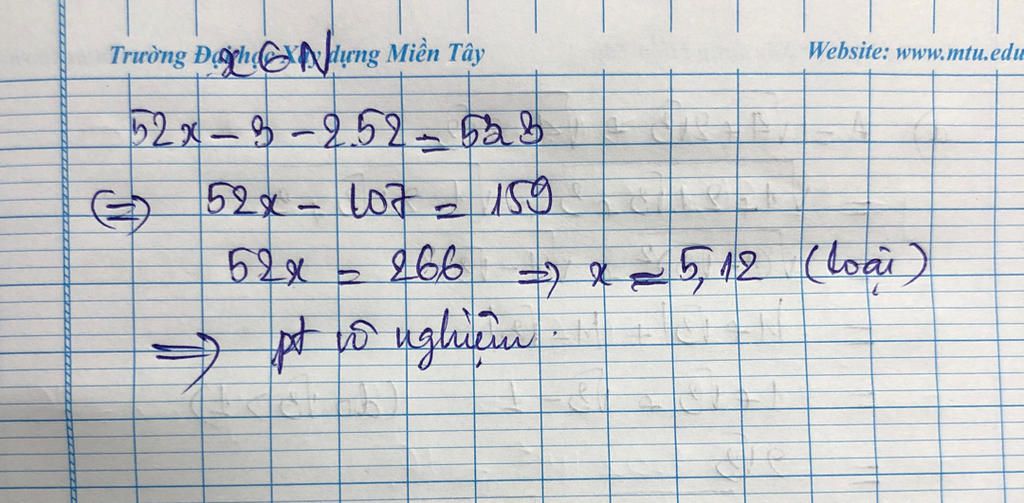 Trường Đại học Xây dựng Miền Tây Website: www.mtu.edu
x ∈ N
52x - 3 - 2.52 = 53.3
(=) 52x - 107 = 159
52x = 266 => x = 5,12 (loại)
=> pt vô nghiệm.